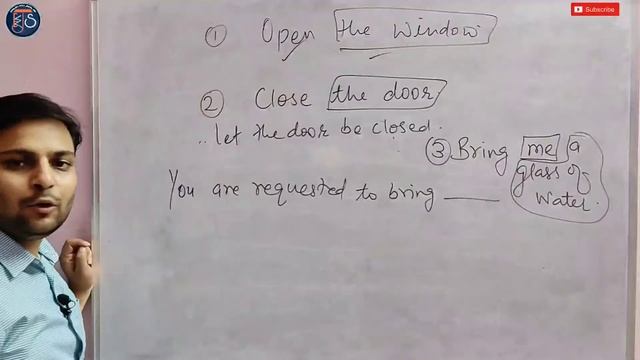 Subscribe
① Open the window
② Close the door
.. let the door be closed.
③ Bring me a
glass of
water.
You are requested to bring ____